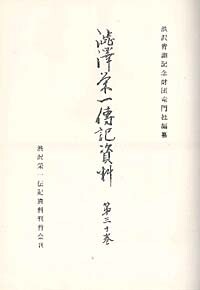 渋沢青淵記念財団竜門社編纂
澁澤榮一傳記資料
第三十巻
渋沢栄一伝記資料刊行会刊